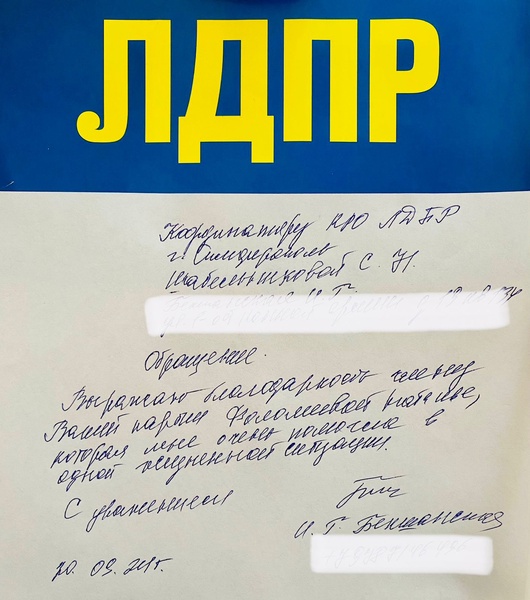 ЛДПР
Координатору КРО ЛДПР
г. Симферополь
Шабельниковой С. Н.
Обращение.
Выражаю благодарность члену
Вашей партии Фоломеевой Наталье,
которая мне очень помогла в
одной жизненной ситуации.
С уважением
И. Г. Беншанская
20. 09. 21г.